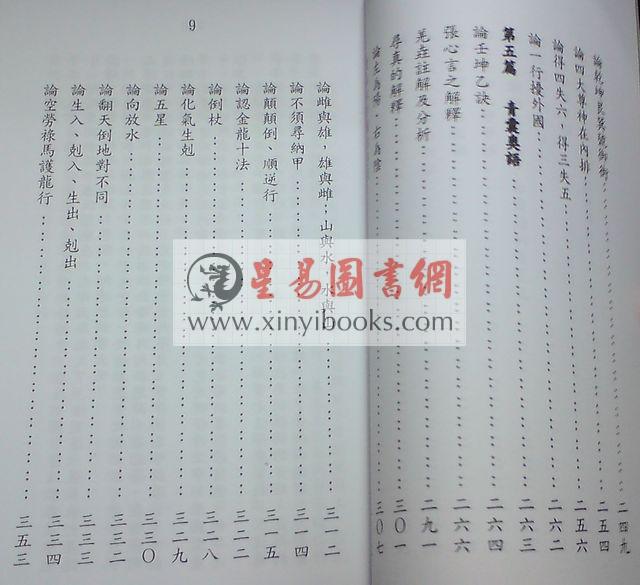 論乾坤艮巽號御街 二四九
論四大尊神在內排 二五四
論得四失六，得三失五 二五六
論一行擾外國 二六三
第五篇 青囊奧語
論壬坤乙訣 二六四
張心言之解釋 二六六
羌垚註解及分析 二九一
尋真的解釋 三〇一
論左為陽 右為陰 三〇七
9
論雌與雄，雄與雌，山與水，水與 三一二
論不須尋納甲 三一四
論顛顛倒、順逆行 三一五
論認金龍十法 三二二
論倒杖 三二八
論化氣生剋 三二九
論五星 三三〇
論向放水 三三二
論翻天倒地對不同 三三三
論生入、剋入、生出、剋出 三三四
論空勞祿馬護龍行 三五三
星易圖書網
www.xinyibooks.com